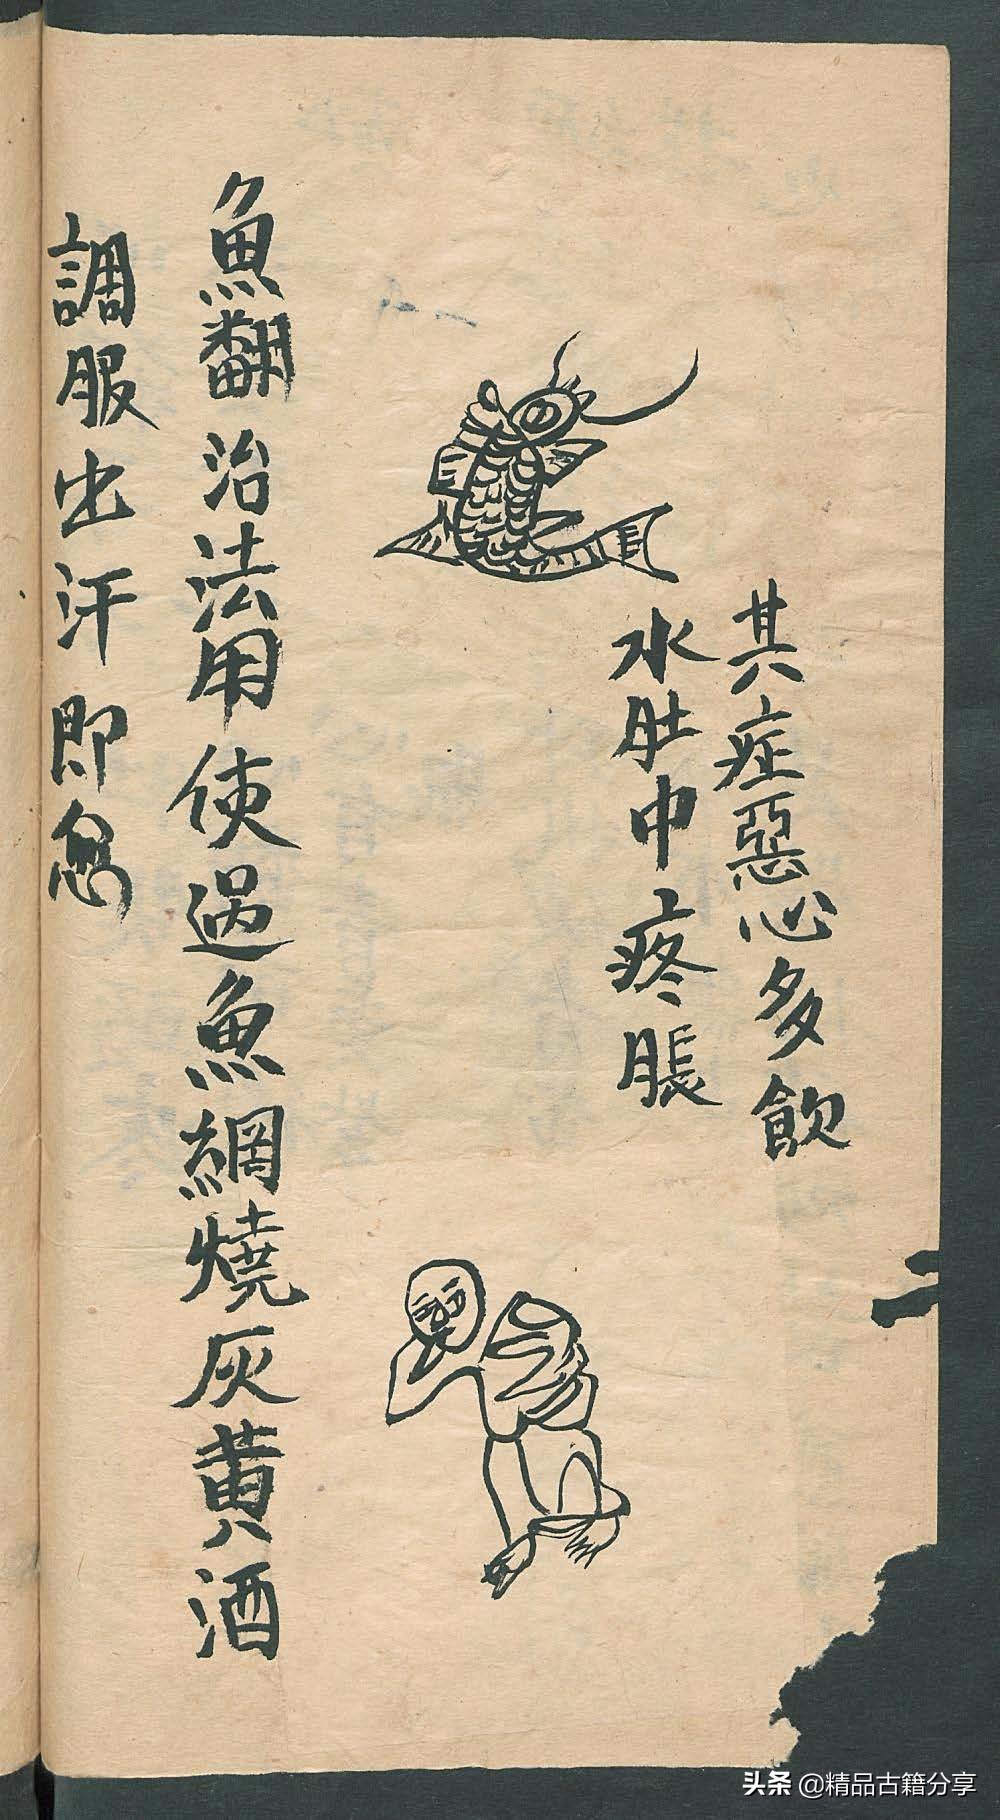 其症惡心多飲
水肚中疼脹
魚翻治法用使過魚網燒灰黄酒
調服出汗即愈
二
头条 @精品古籍分享